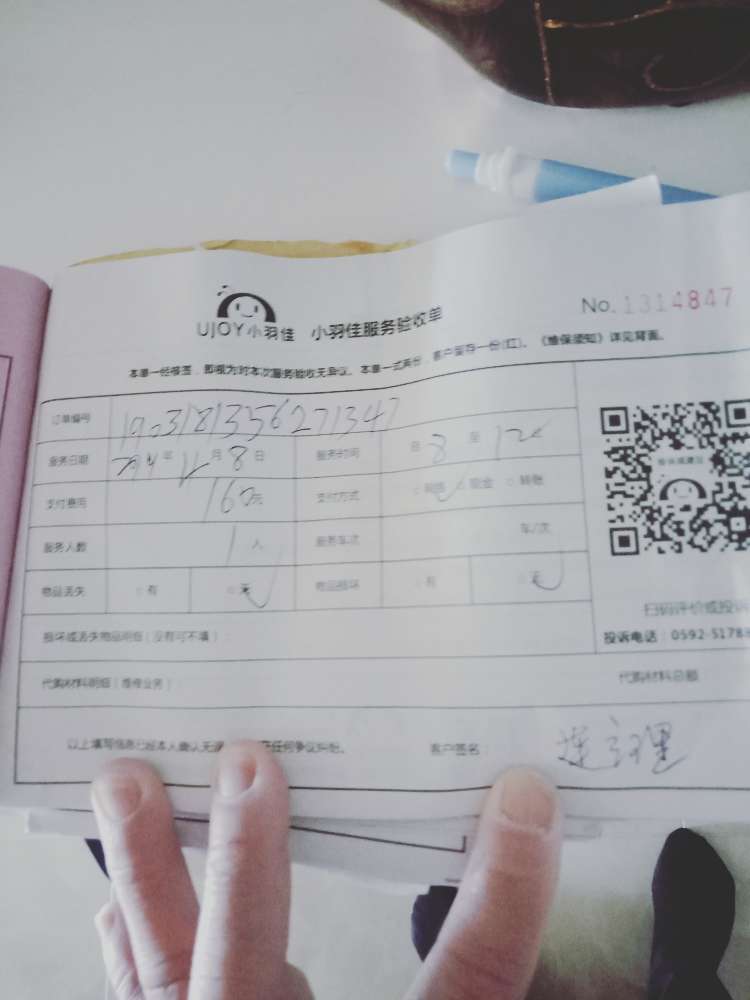 UJOY小羽佳 小羽佳服务验收单 No.1314847
本单一经签, 即视为对本次服务验收无异议。本单一式两份, 客户留存一份(红)。《维保须知》详见背面。
订单编号 1903181356271347
服务日期 年 月 8 日 服务时间 自 8 至 12
支付费用 160元 支付方式 现金 转账
服务人数 1 人 服务车次 车/次
物品丢失 有 无 物品损坏 有 无
扫码评价或投诉
损坏或丢失物品明细(没有可不填): 投诉电话:0592-5178
代购材料明细(维修业务): 代购材料总额
以上填写信息已经本人确认无误 任何争议纠纷。 客户签名: